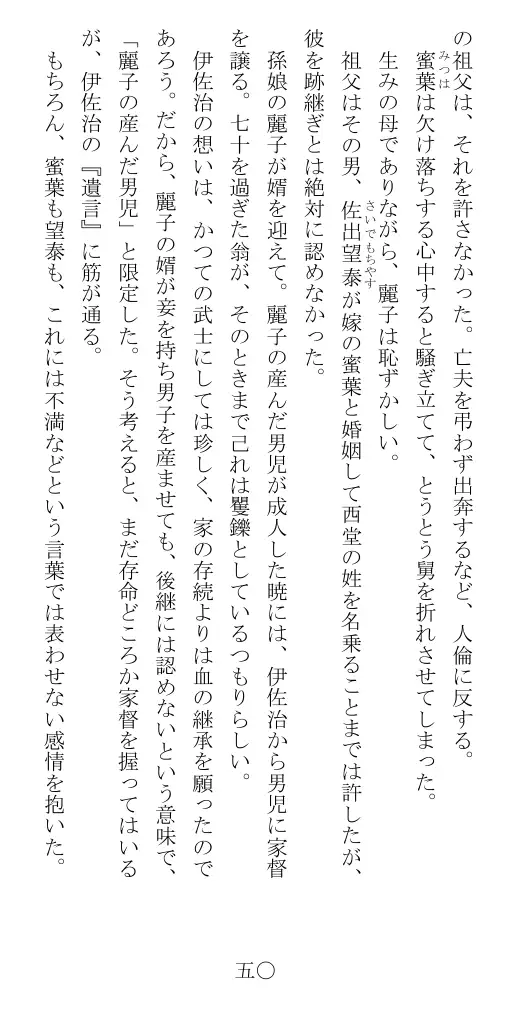 の祖父は、それを許さなかった。亡夫を弔わず出奔するなど、人倫に反する。
みつは
蜜葉は欠け落ちする心中すると騒ぎ立てて、とうとう舅を折れさせてしまった。
生みの母でありながら、麗子は恥ずかしい。
さいでもちやす
祖父はその男、佐出望泰が嫁の蜜葉と婚姻して西堂の姓を名乗ることまでは許したが、
彼を跡継ぎとは絶対に認めなかった。
孫娘の麗子が婿を迎えて。麗子の産んだ男児が成人した暁には、伊佐治から男児に家督
を譲る。七十を過ぎた翁が、そのときまで己れは矍鑠としているつもりらしい。
伊佐治の想いは、かつての武士にしては珍しく、家の存続よりは血の継承を願ったので
あろう。だから、麗子の婿が妾を持ち男子を産ませても、後継には認めないという意味で、
「麗子の産んだ男児」と限定した。そう考えると、まだ存命どころか家督を握ってはいる
が、伊佐治の『遺言』に筋が通る。
もちろん、蜜葉も望泰も、これには不満などという言葉では表わせない感情を抱いた。
五〇